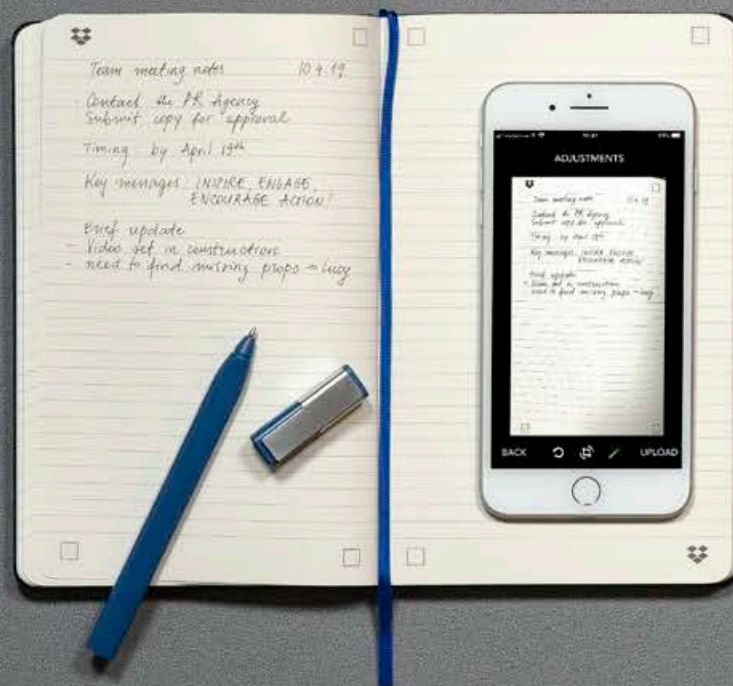 Team meeting notes 10.4.19
- Contact the PR Agency
Submit copy for approval
Timing: by April 19th
Key messages: INSPIRE, ENGAGE,
ENCOURAGE ACTION!
Brief update
- Video set in construction
- need to find missing props → Lucy
ADJUSTMENTS
Team meeting notes 10.4.19
Contact the PR Agency
Submit copy for approval
Timing: by April 19th
Key messages: INSPIRE, ENGAGE,
ENCOURAGE ACTION!
Brief update
- Video set in construction
- need to find missing props → Lucy
BACK UPLOAD